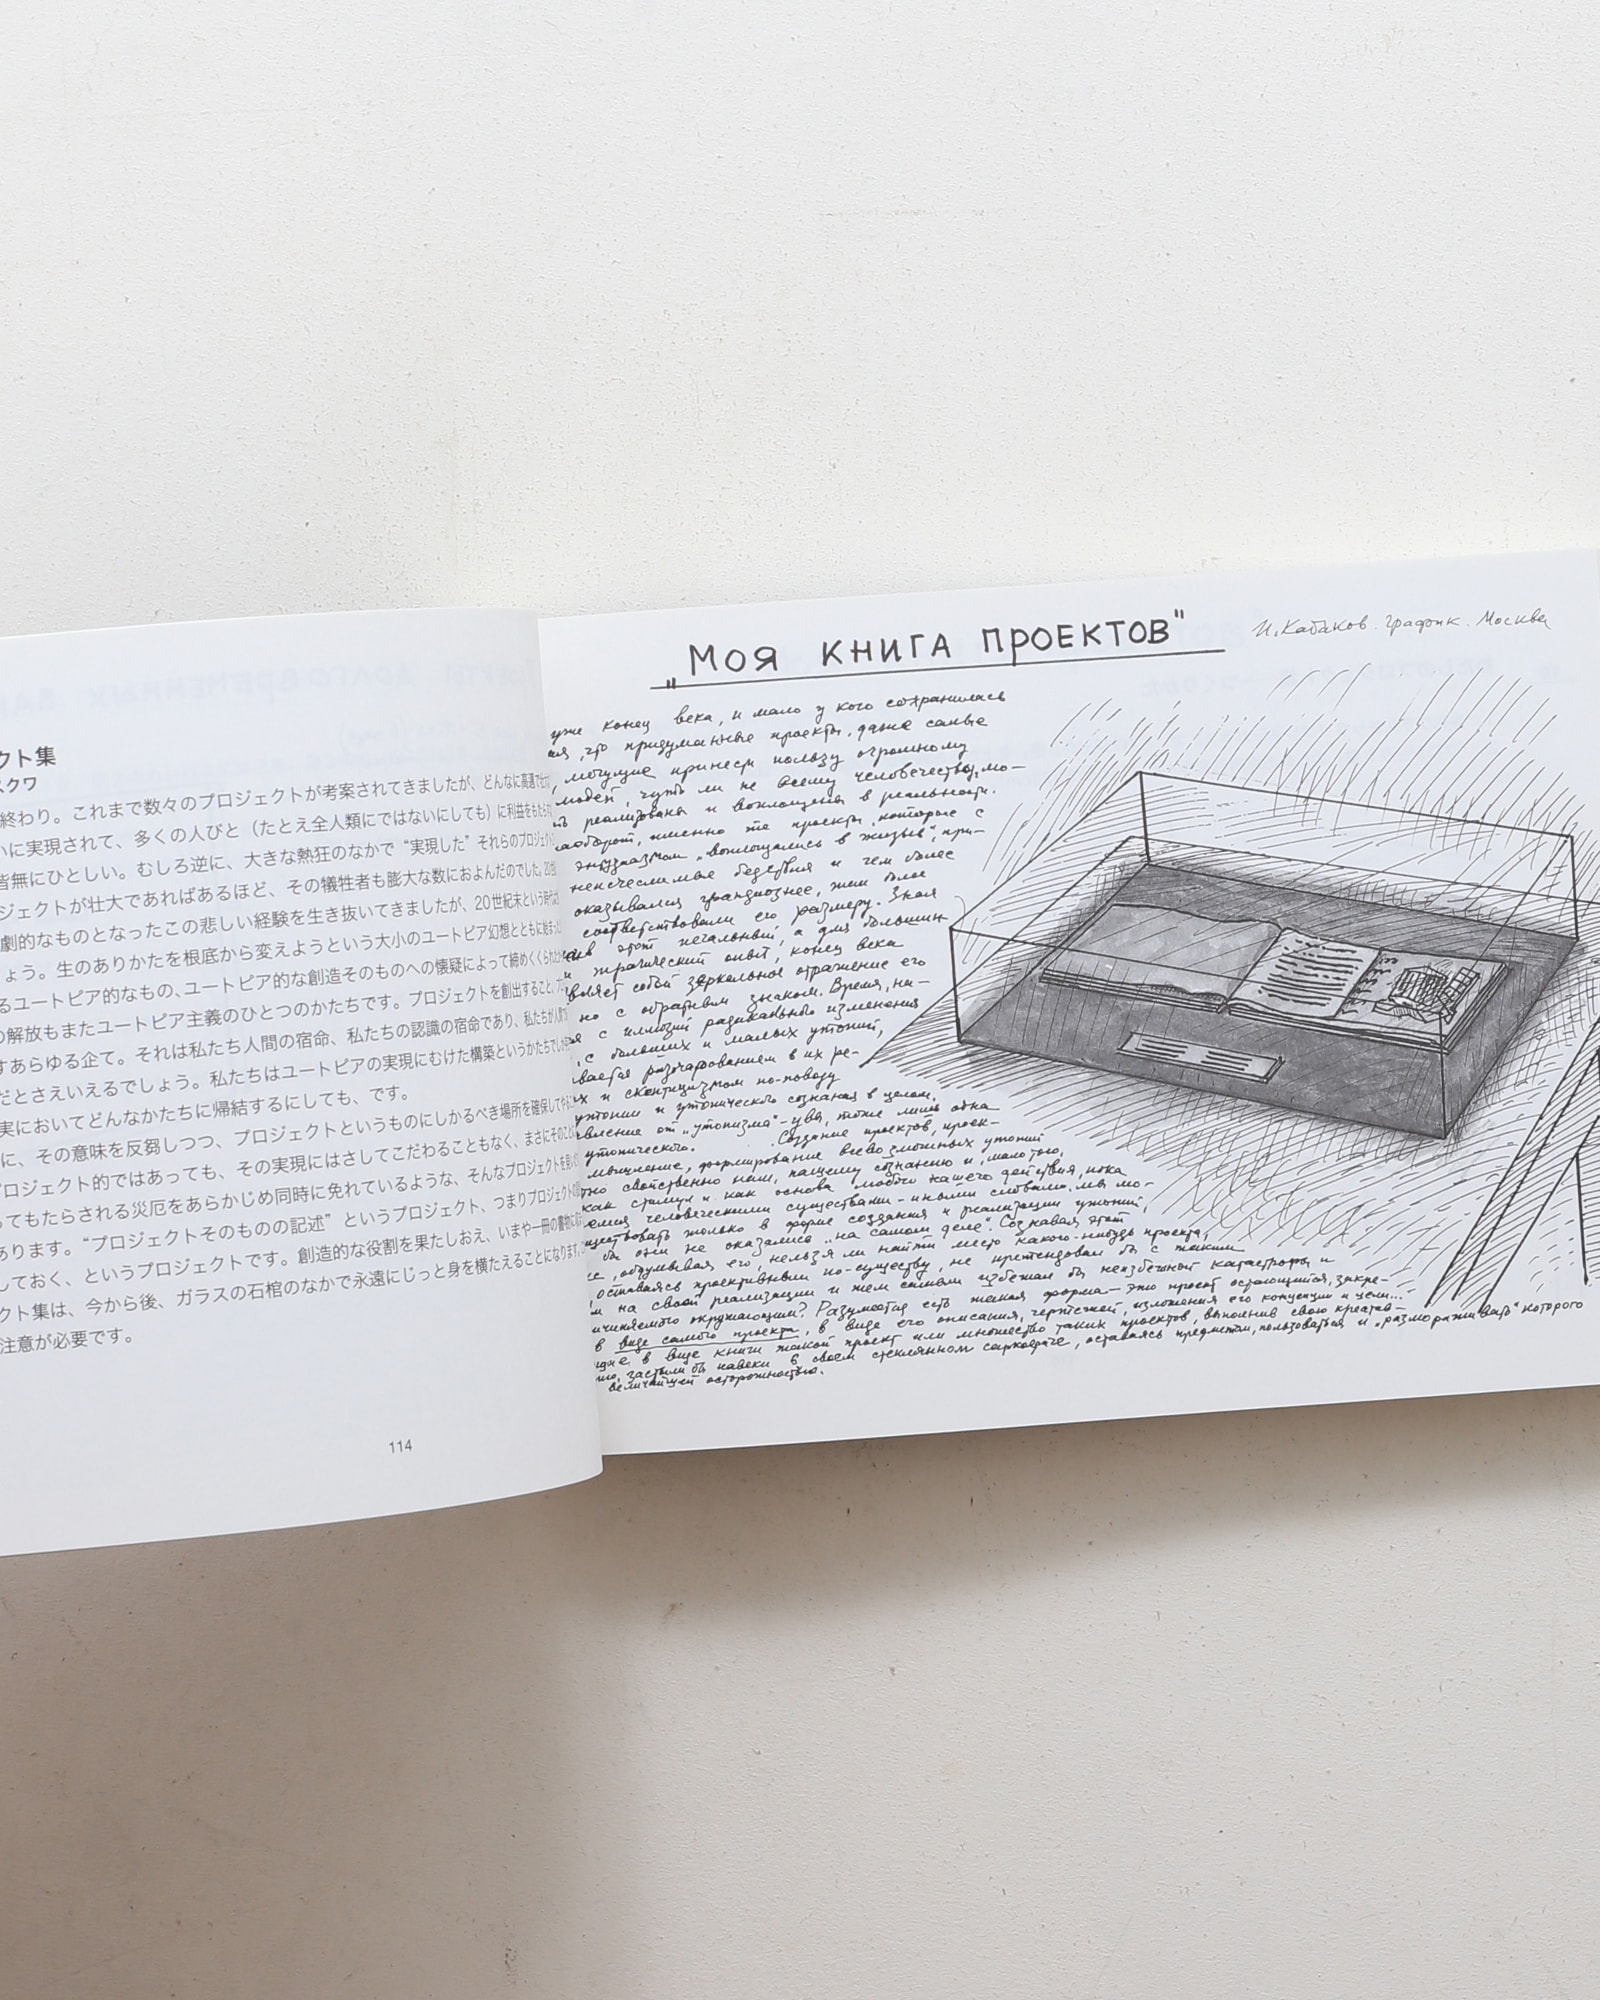 クト集
スクワ
終わり。これまで数々のプロジェクトが考案されてきましたが、どんなに高邁で
いに実現されて、多くの人びと（たとえ全人類にではないにしても）に利益をもたら
皆無にひとしい。むしろ逆に、大きな熱狂のなかで“実現した”それらのプロジェクト
ジェクトが壮大であればあるほど、その犠牲者も膨大な数におよんだのでした。20世
劇的なものとなったこの悲しい経験を生き抜いてきましたが、20世紀末という時代
ょう。生のありかたを根底から変えようという大小のユートピア幻想とともに始まっ
るユートピア的なもの、ユートピア的な創造そのものへの懐疑によって締めくくられ
の解放もまたユートピア主義のひとつのかたちです。プロジェクトを創出すること、
すあらゆる企て。それは私たち人間の宿命、私たちの認識の宿命であり、私たちが人間
だとさえいえるでしょう。私たちはユートピアの実現にむけた構築というかたちでし
実においてどんなかたちに帰結するにしても、です。
に、その意味を反芻しつつ、プロジェクトというものにしかるべき場所を確保してや
プロジェクト的ではあっても、その実現にはさしてこだわることもなく、まさにそのこと
ってもたらされる災厄をあらかじめ同時に免れているような、そんなプロジェクトを
あります。“プロジェクトそのものの記述”というプロジェクト、つまりプロジェクトの
しておく、というプロジェクトです。創造的な役割を果たしおえ、いまや一冊の書物
クト集は、今から後、ガラスの石棺のなかで永遠にじっと身を横たえることになります。
注意が必要です。
114
„Моя книга проектов"
И. Кабаков. график. Москва
уже конец века, и мало у кого сохранилась
, что придуманные проекты, даже самые
, могущие принести пользу огромному
людей, чуть ли не всему человечеству, мо-
реализованы и воплощены в реальности.
наоборот, именно те проекты, которые с
энтузиазмом „воплощались в жизнь", при-
неисчислимые бедствия и чем более
оказывался грандиознее, тем более
соответствовали его размеру. Зная
этот печальный, а для больши
и трагический опыт, конец века
вляет собой зеркальное отражение его
но с обратным знаком. Время, на-
с иллюзий радикального изменения
, с больших и малых утопий,
вается разочарованием в их ре-
х и скептицизмом по-поводу
утопии и утопического сознания в целом.
вление от „утопизма" - увы, тоже лишь одна
утопического. Создание проектов, проек-
мышление, формирование всевозможных утопий
но свойственно нам, нашему сознанию и, мало того,
как стимул и как основа любого нашего действия, пока
емся человеческими существами - иными словами, мы мо-
ществовать только в форме создания и реализации утопий,
бы они не оказались „на самом деле". Сознавая этот
, обдумывая его, нельзя ли найти место какого-нибудь проекта,
, оставаясь проективным по-существу, не претендовал бы с таким
м на свою реализацию и тем самым избежал бы неизбежной катастрофы и
ичиняемого окружающим? Разумеется есть такая форма - это проект остающийся, закре-
в виде самого проекта, в виде его описания, чертежей, изложения его концепции и цели...
в виде книги такой проект или множество таких проектов, выполнив свою креатив-
, застыли бы навеки в своем стеклянном саркофаге, оставаясь предметом, пользоваться и „размораживать" которого
величайшей осторожностью.